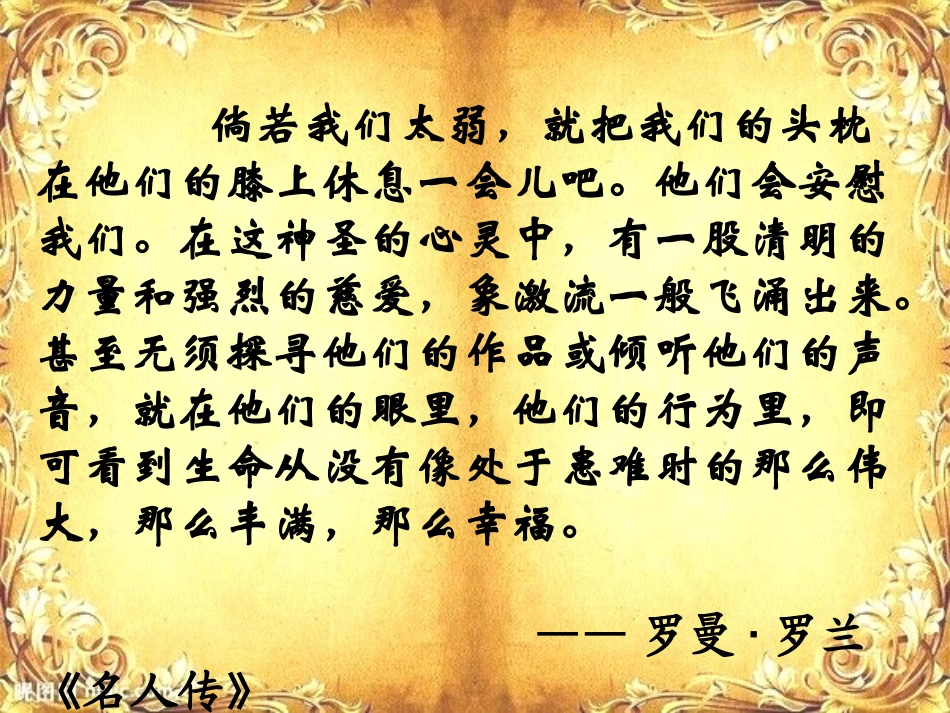 倘若我们太弱，就把我们的头枕
在他们的膝上休息一会儿吧。他们会安慰
我们。在这神圣的心灵中，有一股清明的
力量和强烈的慈爱，象激流一般飞涌出来。
甚至无须探寻他们的作品或倾听他们的声
音，就在他们的眼里，他们的行为里，即
可看到生命从没有像处于患难时的那么伟
大，那么丰满，那么幸福。
—— 罗曼·罗兰
《名人传》
昵图